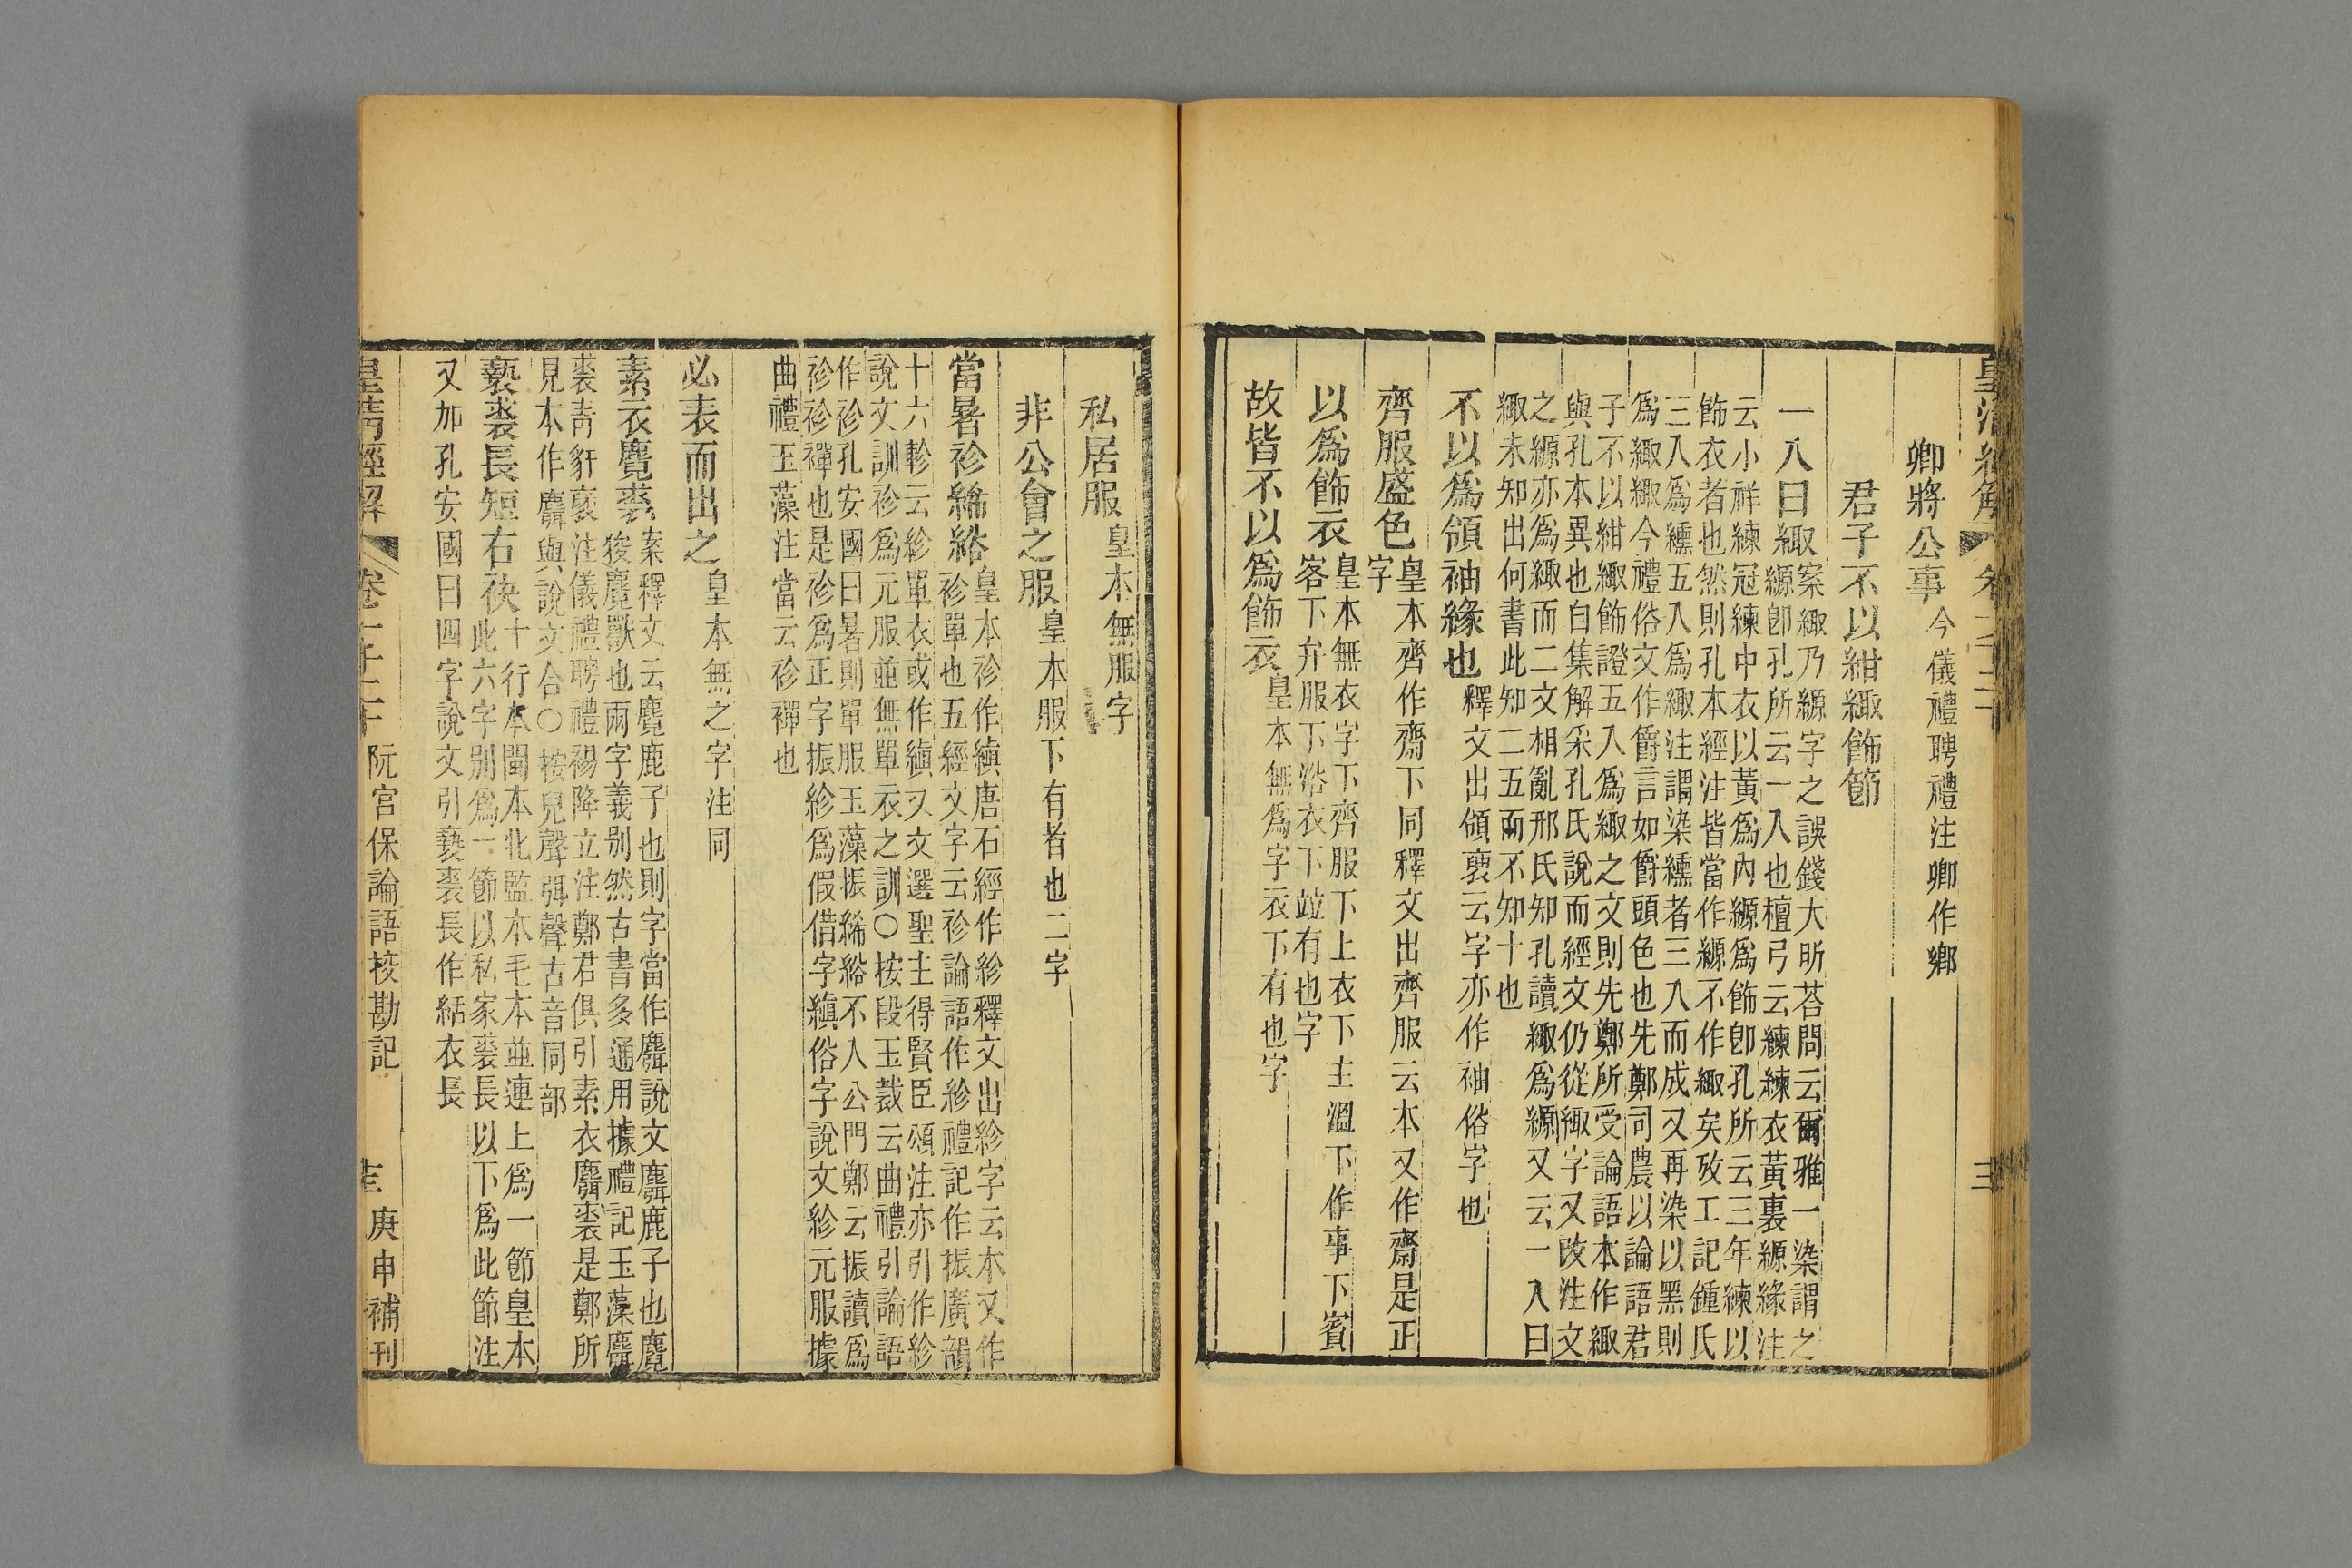 卿將公事今儀禮聘禮注卿作鄉
君子不以紺緅飾節
一入曰緅案緅乃縓字之誤錢大昕荅問云爾雅一染謂之
縓卽孔所云一入也檀弓云練練衣黃裏縓緣注
云小祥練冠練中衣以黃爲內縓爲飾卽孔所云三年練以
飾衣者也然則孔本經注皆當作縓不作緅矣攷工記鍾氏
三入爲纁五入爲緅注謂染纁者三入而成又再染以黑則
爲緅緅今禮俗文作爵言如爵頭色也先鄭司農以論語君
子不以紺緅飾證五入爲緅之文則先鄭所受論語本作緅
與孔本異也自集解采孔氏說而經文仍從緅字又改注文
之縓亦爲緅而二文相亂邢氏知孔讀緅爲縓又云一入曰
緅未知出何書此知二五而不知十也
不以爲領袖緣也釋文出領褎云字亦作袖俗字也
齊服盛色皇本齊作齋下同釋文出齊服云本又作齋是正
字
以爲飾衣皇本無衣字下齊服下上衣下主溫下作事下賓
客下弁服下浴衣下竝有也字
故皆不以爲飾衣皇本無爲字衣下有也字
私居服皇本無服字
非公會之服皇本服下有者也二字
當暑袗絺綌皇本袗作縝唐石經作紾釋文出紾字云本又作
袗單也五經文字云袗論語作紾禮記作振廣韻
十六軫云紾單衣或作縝又文選聖主得賢臣頌注亦引作紾
說文訓袗爲元服並無單衣之訓○按段玉裁云曲禮引論語
作袗孔安國曰暑則單服玉藻振絺綌不入公門鄭云振讀爲
袗袗禪也是袗爲正字振紾爲假借字縝俗字說文紾元服據
曲禮玉藻注當云袗襌也
必表而出之皇本無之字注同
素衣麑裘案釋文云麑鹿子也則字當作麛說文麛鹿子也麑
狻麑獸也兩字義别然古書多通用據禮記玉藻麛
裘靑豻褎注儀禮聘禮裼降立注鄭君俱引素衣麛裘是鄭所
見本作麛與說文合○按兒聲弭聲古音同部
褻裘長短右袂十行本閩本北監本毛本並連上爲一節皇本
此六字别爲一節以私家裘長以下爲此節注
又加孔安國曰四字說文引褻裘長作絬衣長
皇淸經解 卷一千二十 阮宮保論語挍勘記 庚申補刊